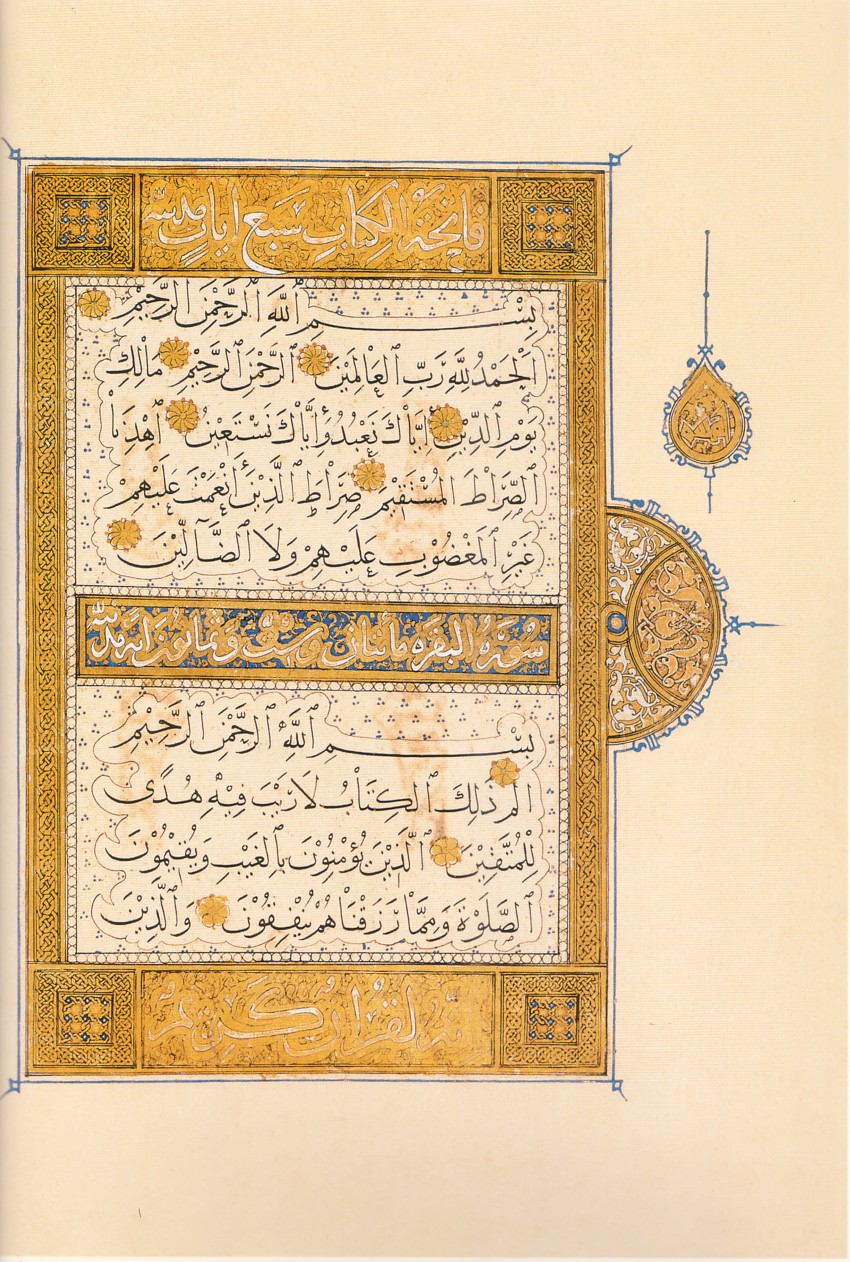 فاتحة الكتاب سبع ايات مدنية
بِسْمِ ٱللَّهِ ٱلرَّحْمَٰنِ ٱلرَّحِيمِ
ٱلْحَمْدُ لِلَّهِ رَبِّ ٱلْعَالَمِيْنَ ٱلرَّحْمَٰنِ ٱلرَّحِيْمِ مَالِكِ
يَوْمِ ٱلدِّيْنِ إِيَّاكَ نَعْبُدُ وَإِيَّاكَ نَسْتَعِيْنُ ٱهْدِنَا
ٱلصِّرَاطَ ٱلْمُسْتَقِيْمَ صِرَاطَ ٱلَّذِيْنَ أَنْعَمْتَ عَلَيْهِمْ
غَيْرِ ٱلْمَغْضُوْبِ عَلَيْهِمْ وَلَا ٱلضَّآلِّيْنَ
سورة البقره مائتان وست وثمانون اية مدنية
بِسْمِ ٱللَّهِ ٱلرَّحْمَٰنِ ٱلرَّحِيْمِ
الم ذَٰلِكَ ٱلْكِتَابُ لَا رَيْبَ فِيْهِ هُدًى
لِلْمُتَّقِيْنَ ٱلَّذِيْنَ يُؤْمِنُوْنَ بِٱلْغَيْبِ وَيُقِيْمُوْنَ
ٱلصَّلَوٰةَ وَمِمَّا رَزَقْنَاهُمْ يُنْفِقُوْنَ وَٱلَّذِيْنَ
انه لقران كريم